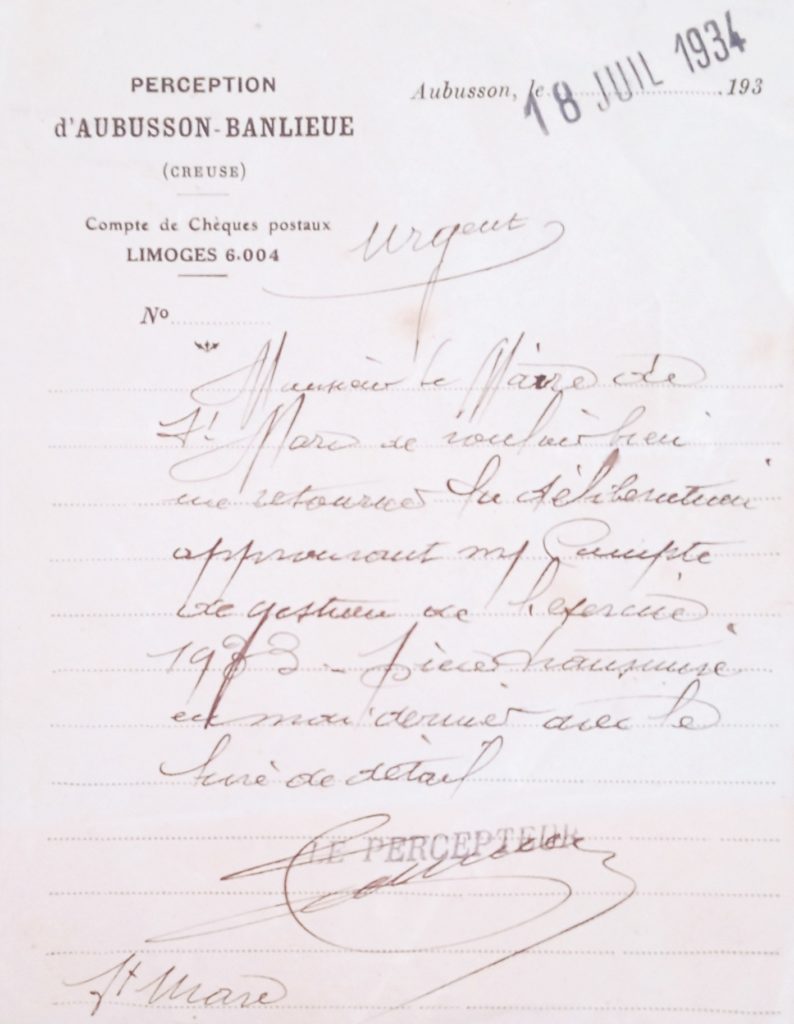 PERCEPTION
d'AUBUSSON-BANLIEUE
(CREUSE)
Compte de Chèques postaux
LIMOGES 6.004
Nº
Aubusson, le 18 JUIL 1934 193
Urgent
Monsieur le Maire de
St Marc de vouloir bien
me retourner la délibération
approuvant mon Compte
de gestion de l'exercice
1933 - Pièce transmise
en mai dernier avec le
livre de détail
LE PERCEPTEUR
St Marc